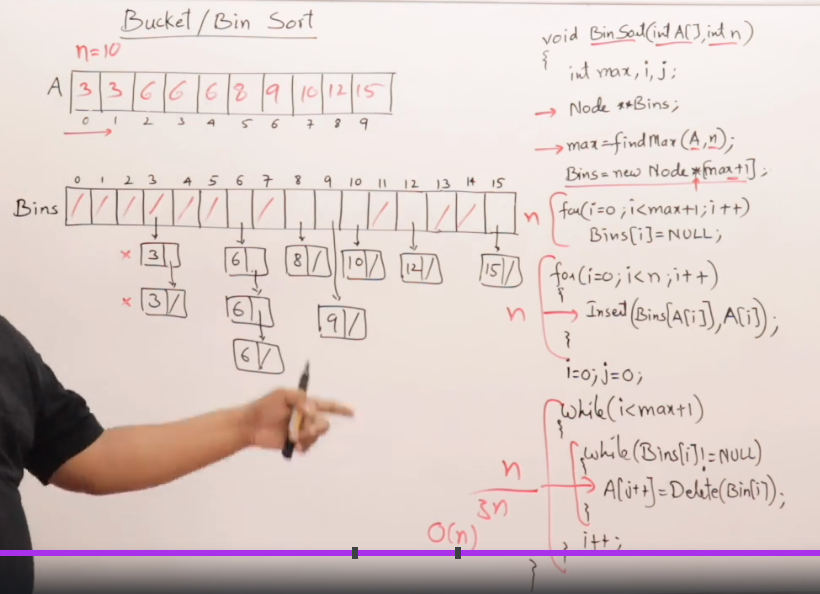 Bucket/Bin Sort
n=10
A 3 3 6 6 6 8 9 10 12 15
0 1 2 3 4 5 6 7 8 9
0 1 2 3 4 5 6 7 8 9 10 11 12 13 14 15
Bins / / / / / / / / / /
× 3 6 8 / 10 / 12 / 15 /
× 3 / 6 9 /
6 /
void BinSort(int A[], int n)
{
int max, i, j;
→ Node **Bins;
→ max=findMax(A,n);
Bins=new Node *[max+1];
n for(i=0;i<max+1;i++)
Bins[i]=NULL;
for(i=0;i<n;i++)
{
n → Insert(Bins[A[i]],A[i]);
}
i=0;j=0;
while(i<max+1)
{
{while(Bins[i]!=NULL)
n → A[j++]=Delete(Bin[i]);
3n
}
O(n)
i++;
}
}